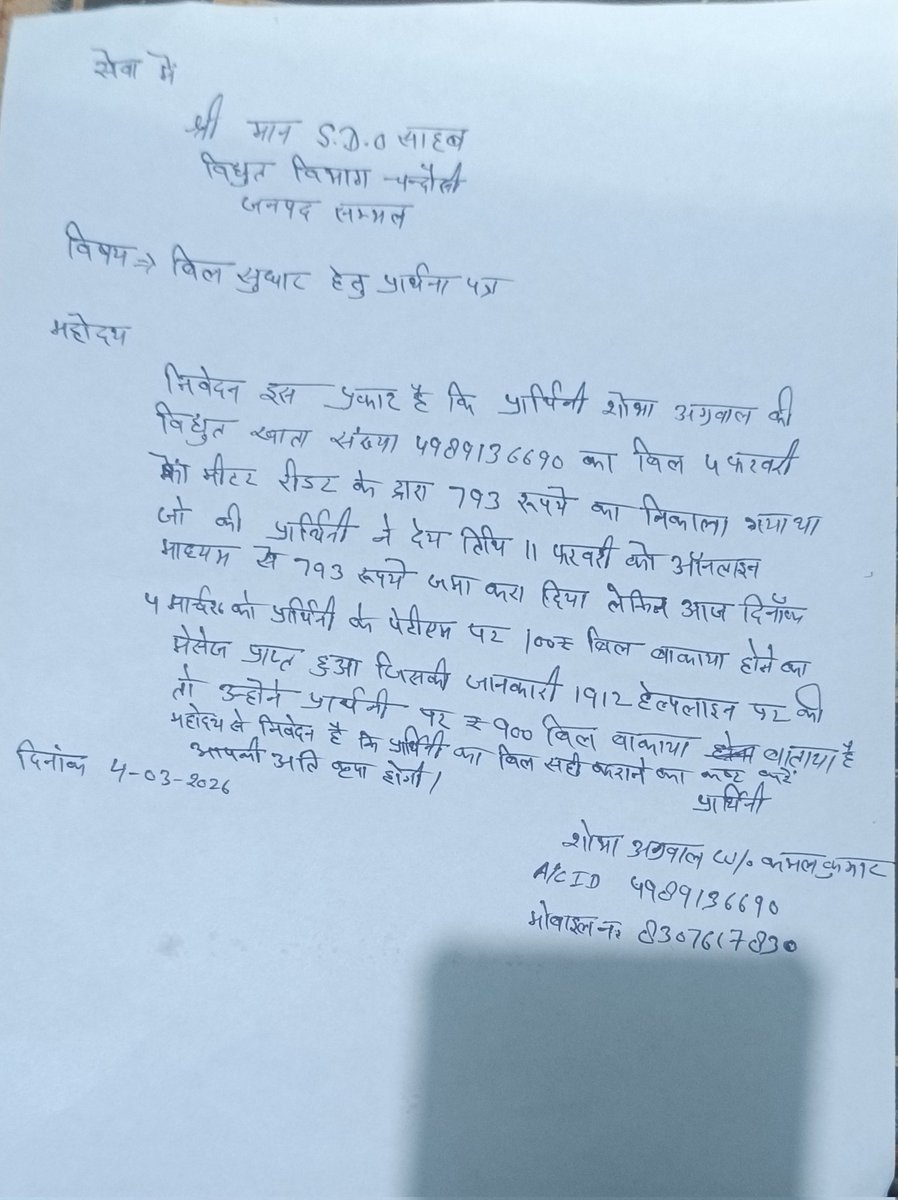 सेवा में
श्री मान S.D.O साहब
विधुत विभाग चन्दौसी
जनपद सम्भल
विषय⇒ बिल सुधार हेतु प्रार्थना पत्र
महोदय
निवेदन इस प्रकार है कि प्रार्थिनी शोभा अग्रवाल की
विधुत खाता संख्या 4989136690 का बिल 4 फरवरी
को मीटर रीडर के द्वारा 793 रूपये का निकाला गया था
जो की प्रार्थिनी ने देय तिथि 11 फरवरी को ऑनलाइन
माध्यम से 793 रूपये जमा करा दिया लेकिन आज दिनाँक
4 मार्च26 को प्रार्थिनी के पेटीएम पर 100₹ बिल बाकाया होने का
मैसेज प्राप्त हुआ जिसकी जानकारी 1912 हेल्पलाइन पर की
तो उन्होने प्रार्थनी पर ₹ 900 बिल बाकाया बाताया है
महोदय से निवेदन है कि प्रार्थिनी का बिल सही कराने का कष्ट करें
आपकी अति कृपा होगी।
दिनांक 4-03-2026
प्रार्थिनी
शोभा अग्रवाल W/o कमल कुमार
A/C ID 4989136690
मोबाइल नं 8307617830